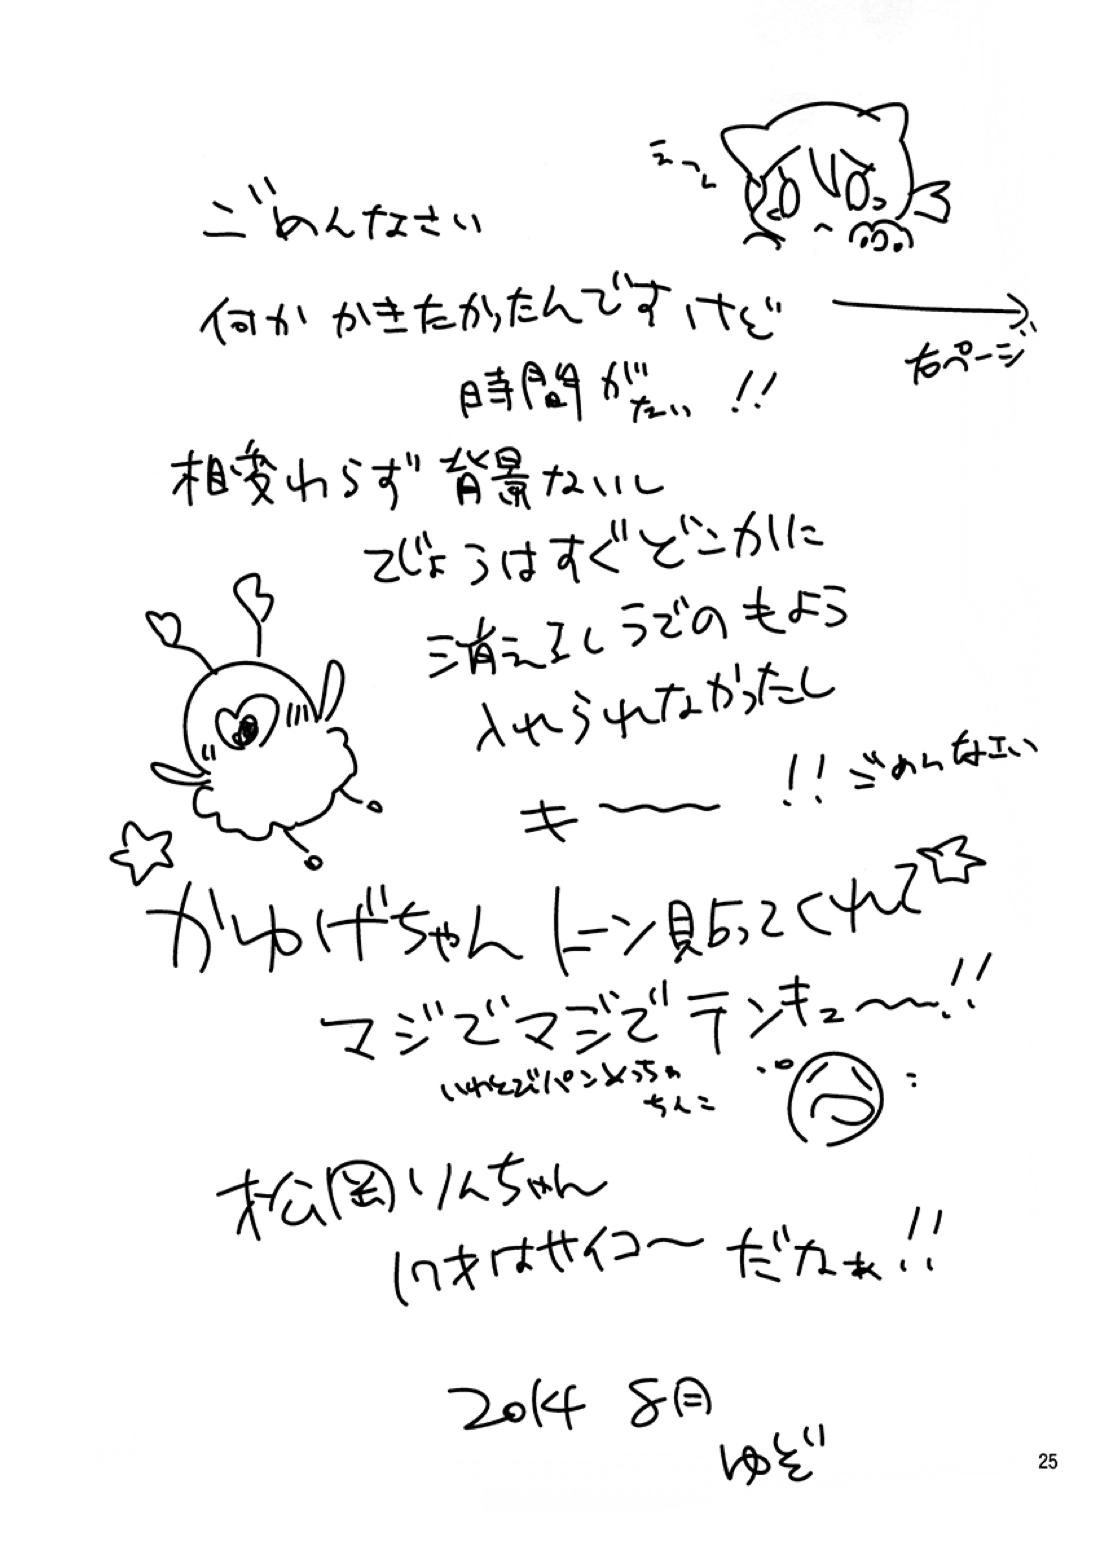 えーん
ごめんなさい
何か かきたかったんですけど
右ページ
時間がない!!
相変わらず背景ないし
てじょうはすぐどこかに
消え
うでのもよう
入れられなかったし
キー〜〜 !! ごめんなエい
かゆげちゃん トーン貼ってくれて☆
マジでマジでテンキュー〜〜!!
ちんこ
松岡りんちゃん
17才はサイコ〜だなぁ!!
2014 8月
ゆぞ
25